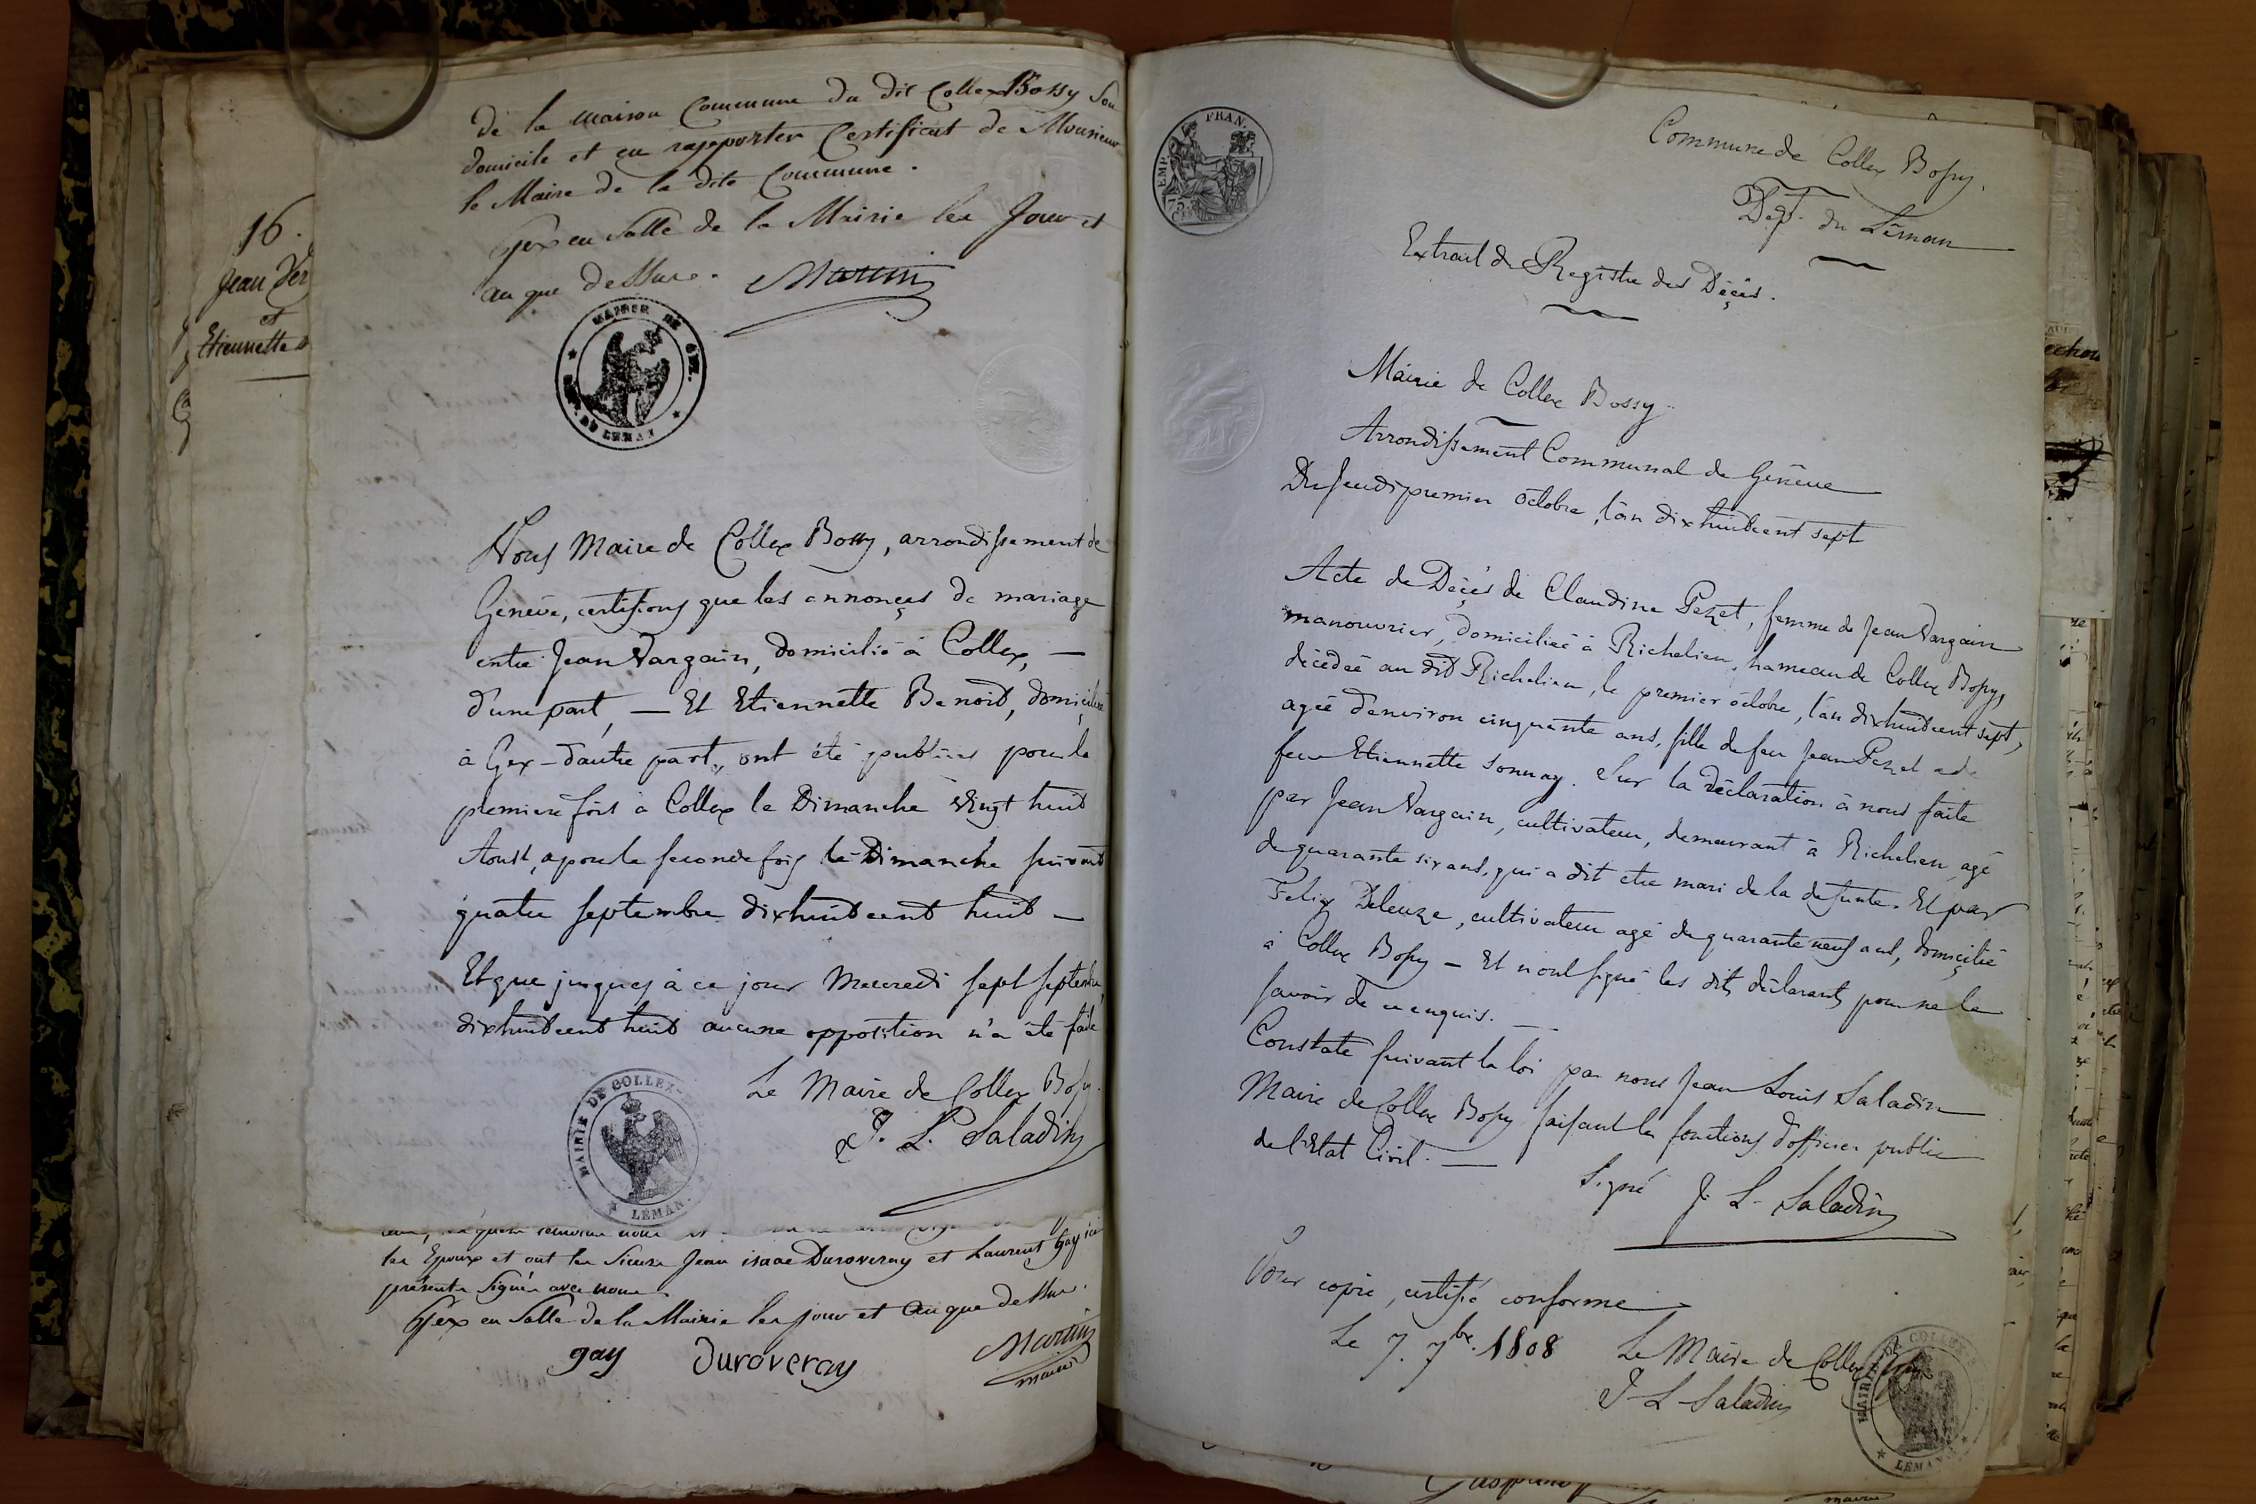 de la maison Commune du dit Collex Bossy Son
domicile et en rapporter Certificat de Monsieur
le Maire de la dite Commune.
Gex en Salle de la Mairie les Jour et
an que dessus. Martin
MAIRIE DE GEX.
DEP. DU LEMAN
16.
Jean Ver
et
Etiennette
Nous Maire de Collex Bossy, arrondissement de
Genève, certifions que les annonçes de mariage
entre Jean Vargain, domicilié à Collex, —
d'une part, — Et Etiennette Benoid, domiciliée
à Gex – d'autre part, ont été publiées pour la
premiere fois à Collex le Dimanche vingt huit
Aoust, & pour la seconde fois le Dimanche suivant
quatre septembre dixhuitcent huit —
Et que jusques à ce jour Mercredi sept septembre,
dixhuitcent huit aucune opposition n'a été faite
Le Maire de Collex Bossy.
J. L. Saladin
MAIRIE DE COLLEX-
LÉMAN.
les Epoux et ont les Sieurs Jean isaac Duroveray et Laurent Gay ici
présents Signés avec nous.
Gex en Salle de la Mairie les jour et an que dessus.
gay Duroveray Martin
maire
EMP. FRAN.
75 C
Commune de Collex Bossy.
Dept. du Léman
Extrait du Registre des Déçès.
Mairie de Collex Bossy.
Arrondissement Communal de Genève
Du Jeudi premier octobre, l'an dixhuitcent sept
Acte de Déçès de Claudine Pezet, femme de Jean Vargain
manouvrier, domiciliée à Richelieu, hameau de Collex Bossy,
décédée au dit Richelieu, le premier octobre, l'an dixhuitcent sept,
agée d'environ cinquante ans, fille de feu Jean Pezet & de
feue Etiennette Sonnay. Sur la déclaration à nous faite
par Jean Vargain, cultivateur, demeurant à Richelieu, agé
de quarante six ans, qui a dit etre mari de la defunte. Et par
Felix Deleuze, cultivateur agé de quarante neuf ans, domiçilié
à Collex Bossy – Et n'ont signé les dits déclarants pour ne le
savoir de ce enquis. —
Constaté suivant la loi par nous Jean Louis Saladin
Maire de Collex Bossy faisant les fonctions d'officier public
de l'Etat Civil. —
Signé J. L. Saladin
Pour copie, certifié conforme
Le 7. 7bre. 1808 Le Maire de Collex Bossy
J. L. Saladin
MAIRIE DE COLLEX
LEMAN
maire